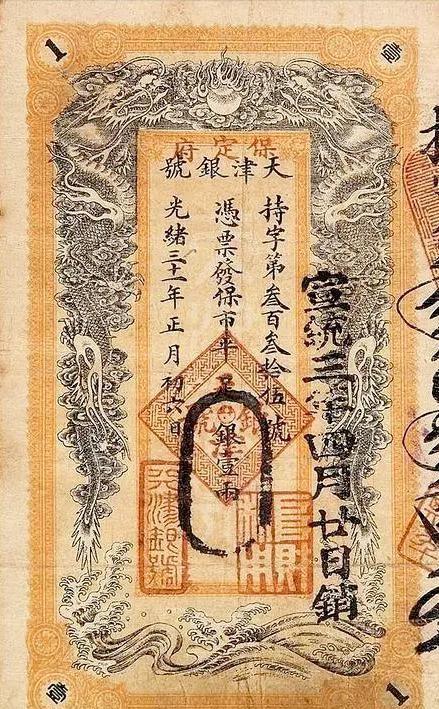 1
壹
保定府
天津銀號
持字第叁百叁拾伍號
憑票發保市平足銀壹兩
光緒三十一年正月初六日
宣統三年四月廿日銷
天津銀號
壹
1